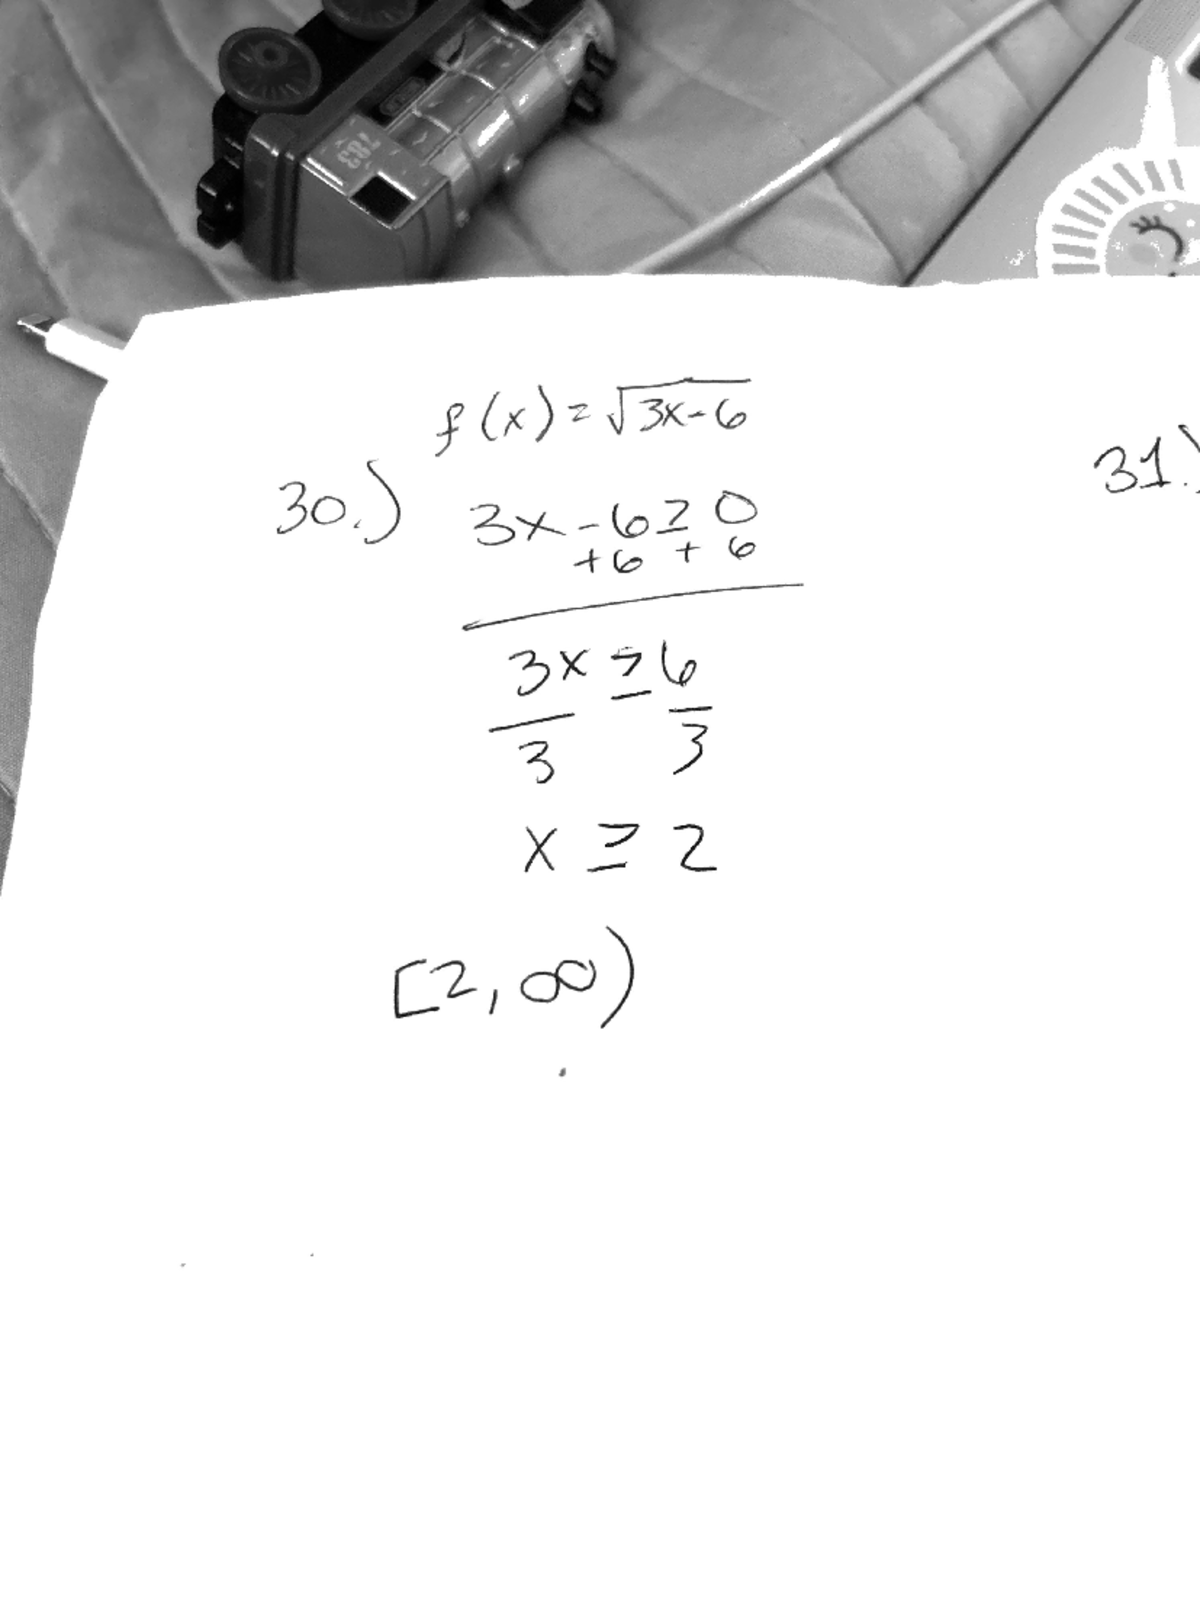 783
f(x) = √3x-6
30.) 3x - 6 ≥ 0
+6 + 6
3x ≥ 6
3 3
x ≥ 2
[2, ∞)
31.)